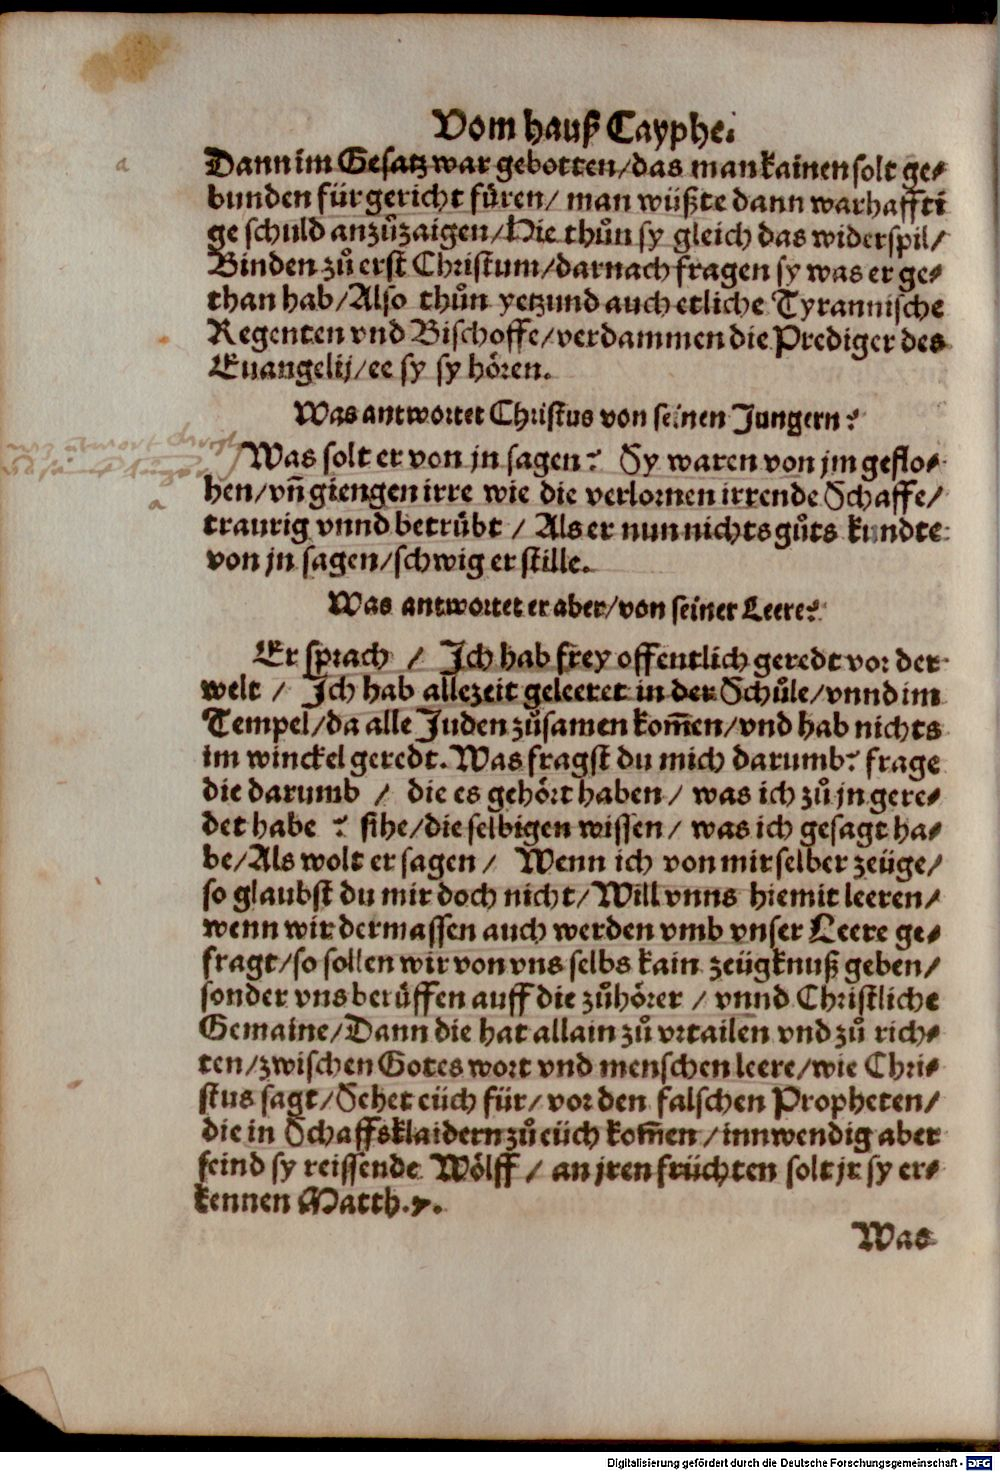 Vom hauß Cayphe.
Dann im Gesatz war gebotten/das man kainen solt ge⸗
bunden für gericht füren/ man wüßte dann warhaffti
ge schuld anzůzaigen/Hie thůn sy gleich das widerspil/
Binden zů erst Christum/darnach fragen sy was er ge⸗
than hab/Also thůn yetzund auch etliche Tyrannische
Regenten vnd Bischoffe/verdammen die Prediger des
Euangelij/ee sy sy hören.
Was antwortet Christus von seinen Jungern?
Was solt er von jn sagen? Sy waren von jm geflo⸗
hen/vñ giengen irre wie die verlornen irrende Schaffe/
traurig vnnd betrůbt / Als er nun nichts gůts kundte
von jn sagen/schwig er stille.
Was antwortet er aber/von seiner Leere?
Er sprach / Ich hab frey offentlich geredt vor der
welt / Ich hab allezeit geleeret in der Schůle/vnnd im
Tempel/da alle Juden zůsamen kom̃en/vnd hab nichts
im winckel geredt. Was fragst du mich darumb? frage
die darumb / die es gehört haben/ was ich zů jn gere⸗
det habe ? sihe/die selbigen wissen/ was ich gesagt ha⸗
be/Als wolt er sagen/ Wenn ich von mir selber zeüge/
so glaubst du mir doch nicht/Will vnns hiemit leeren/
wenn wir dermassen auch werden vmb vnser Leere ge⸗
fragt/so sollen wir von vns selbs kain zeügknuß geben/
sonder vns berůffen auff die zůhörer / vnnd Christliche
Gemaine/Dann die hat allain zů vrtailen vnd zů rich⸗
ten/zwischen Gotes wort vnd menschen leere/wie Chri⸗
stus sagt/Sehet eüch für/ vor den falschen Propheten/
die in Schaffsklaidern zů eüch kom̃en/innwendig aber
seind sy reissende Wölff / an jren früchten solt jr sy er⸗
kennen Matth.7.
Was
a
a
Digitalisierung gefördert durch die Deutsche Forschungsgemeinschaft - DFG